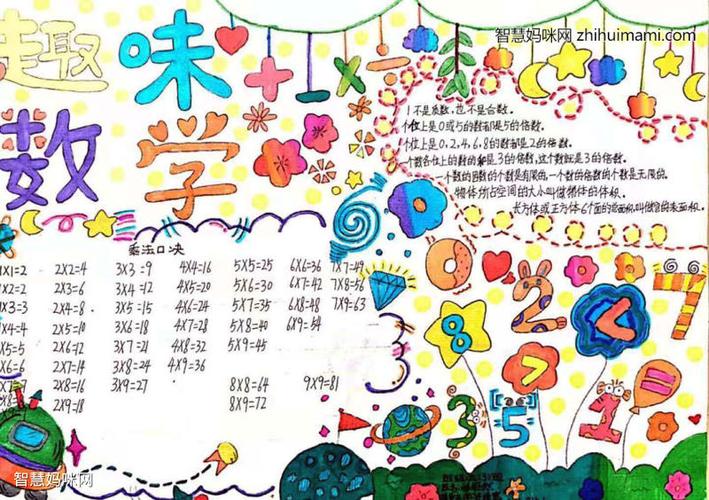 智慧妈咪网 zhihuimami.com
趣味
数学
+ - × ÷
1不是质数，也不是合数。
个位上是0或5的数都是5的倍数。
个位上是0,2,4,6,8的数都是2的倍数。
一个数各位上的数的和是3的倍数，这个数就是3的倍数。
一个数的因数的个数是有限的，一个数的倍数的个数是无限的。
物体所占空间的大小叫做物体的体积。
长方体或正方体6个面的总面积叫做它的表面积。
乘法口决
1X1=2 2X2=4 3X3=9 4X4=16 5X5=25 6X6=36 7X7=49
1X2=2 2X3=6 3X4=12 4X5=20 5X6=30 6X7=42 7X8=56
1X3=3 2X4=8 3X5=15 4X6=24 5X7=35 6X8=48 7X9=63
X4=4 2X5=10 3X6=18 4X7=28 5X8=40 6X9=54
X5=5 2X6=12 3X7=21 4X8=32 5X9=45
X6=6 2X7=14 3X8=24 4X9=36
2X8=16 3X9=27 8X8=64 9X9=81
2X9=18 8X9=72
0 2 < 7
8 > 1 =
3 5
智慧妈咪网